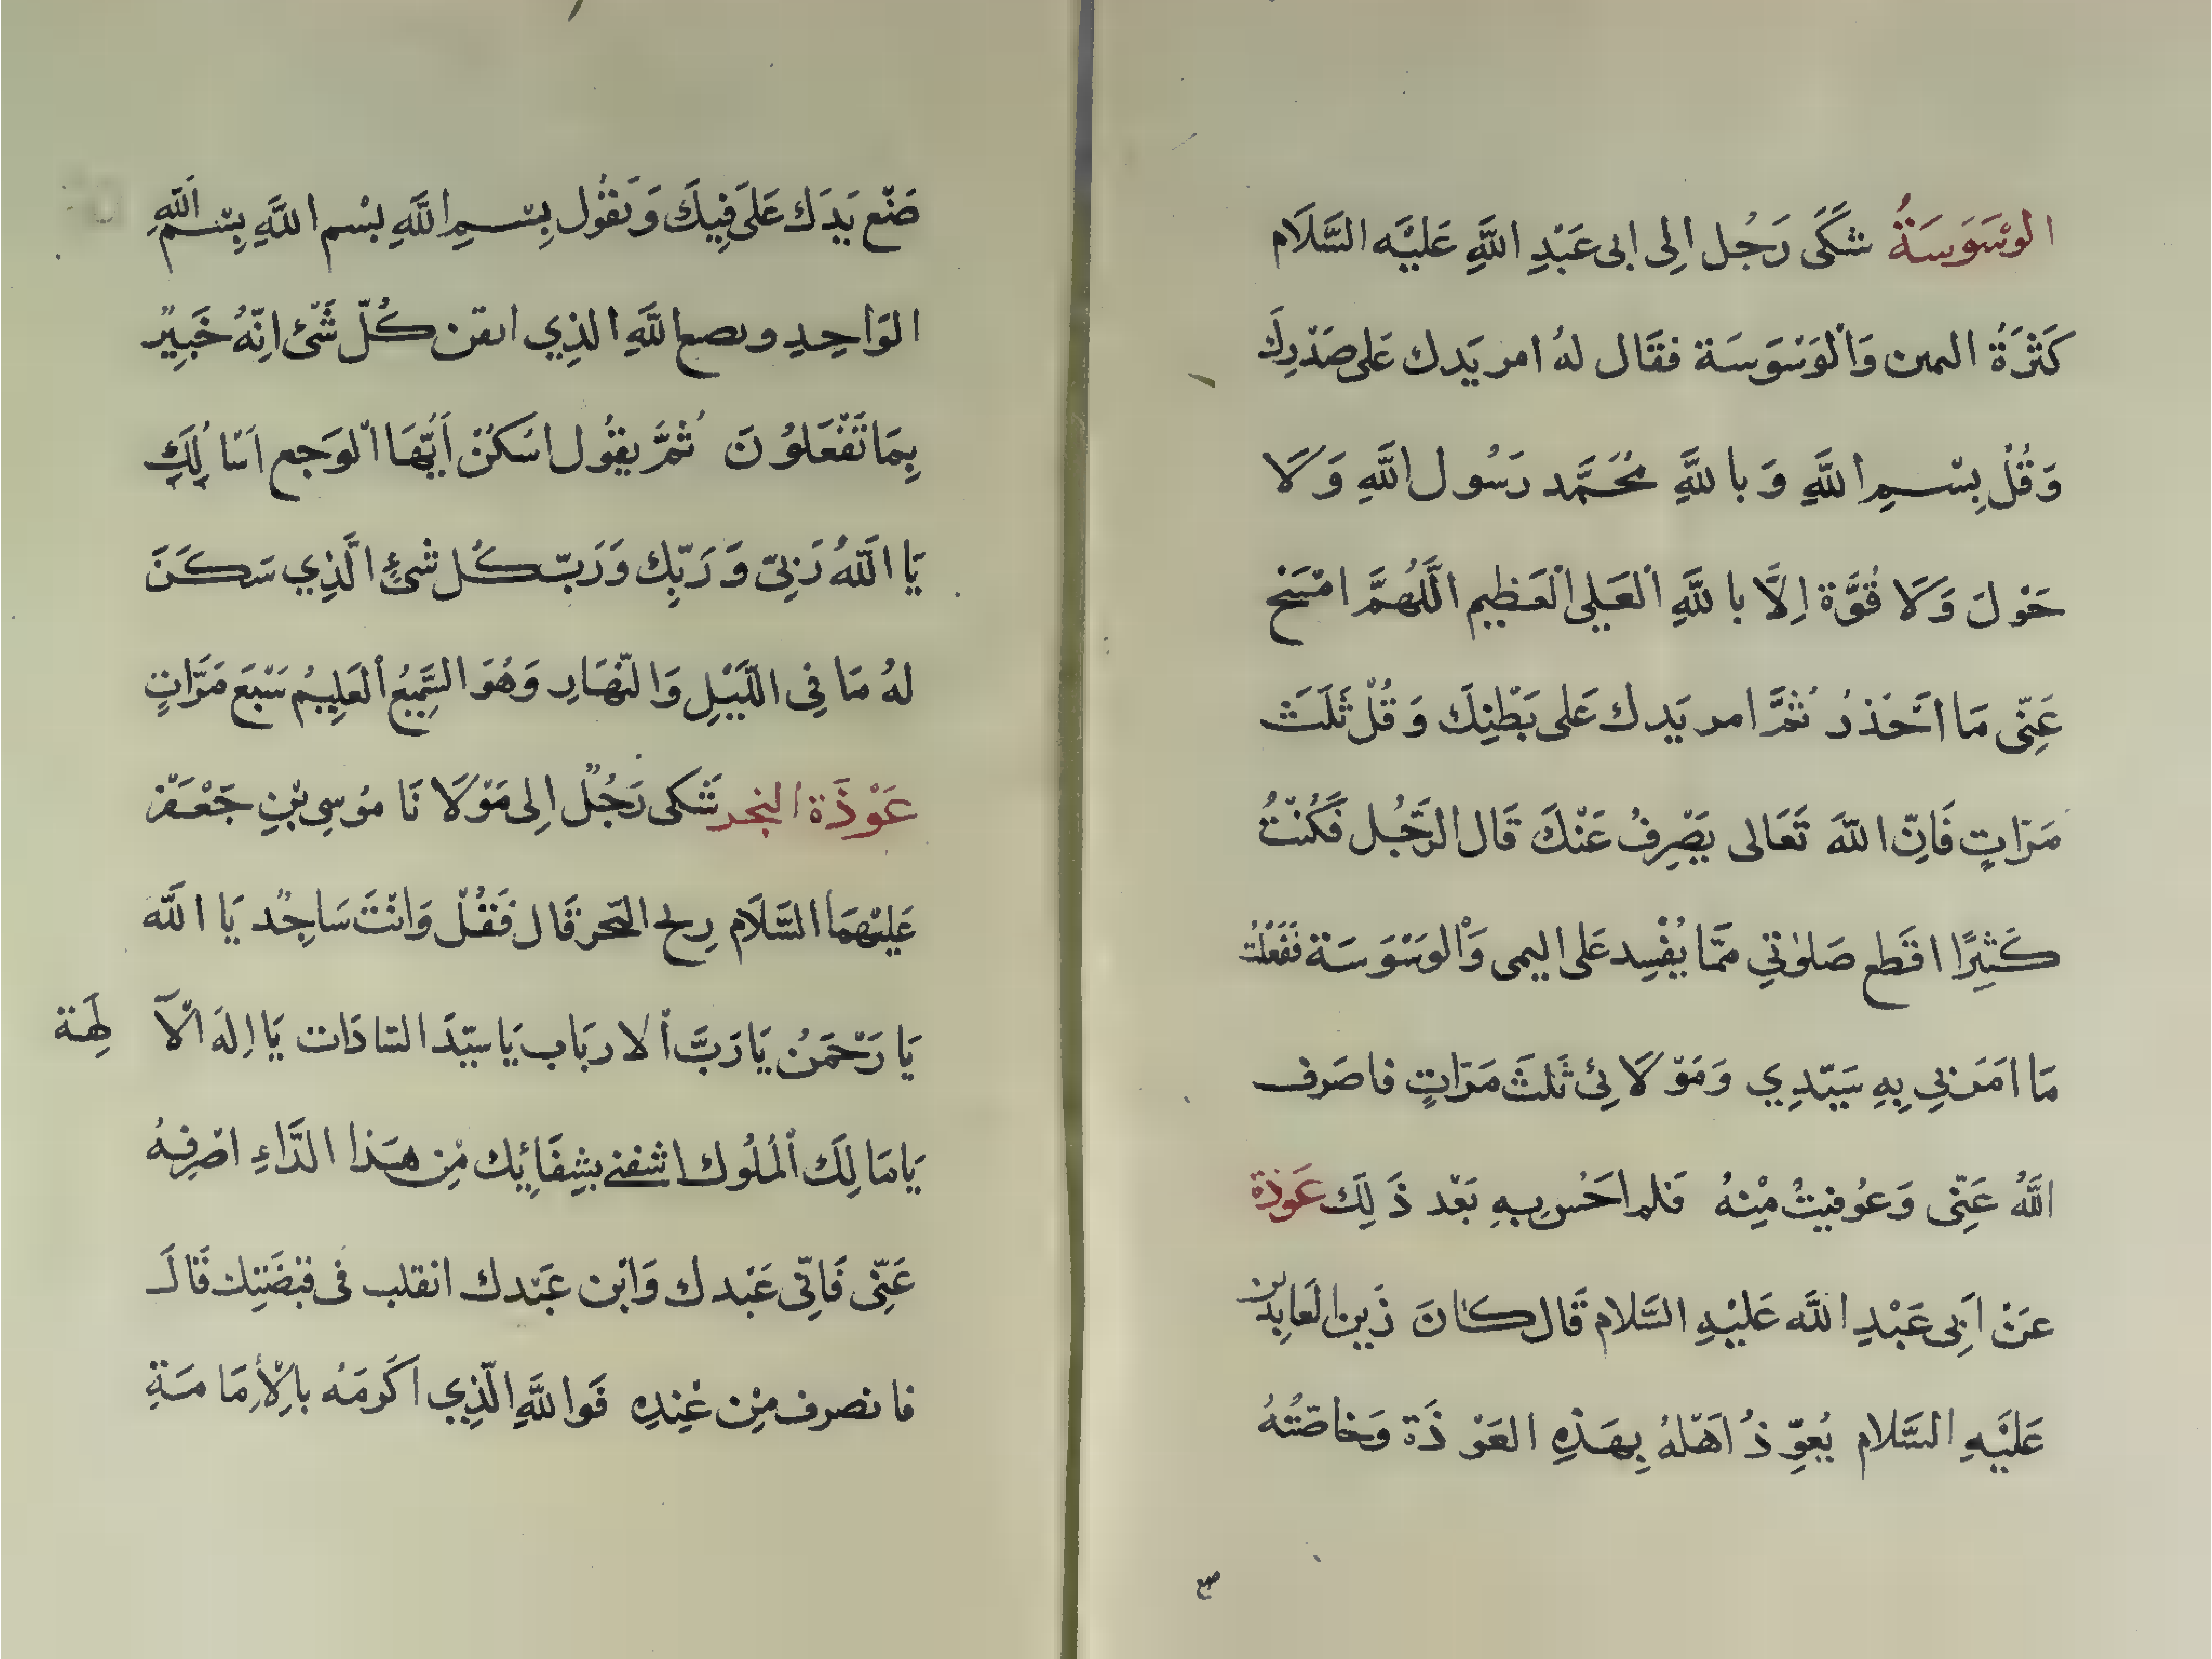 الوَسْوَسَةُ شَكَىٰ رَجُل الِى ابى عَبْدِ اللَّهِ عَلَيْه السَّلَام
كَثْرَةُ المىن وَالْوَسْوَسَة فقَال لهُ امر يَدك عَلى صَدْرِكَ
وَقُلْ بِسْمِ اللَّهِ وَ با للَّهِ مُحَمَّد رَسُول اللَّهِ وَ لَا
حَوْلَ وَ لَا قُوَّة اِلَّا با للَّهِ الْعَلِى الْعَظِيم اللَّهُمَّ امْسَح
عَنِّى مَا اَحْذَرُ ثُمَّ امر يَدك عَلى بَطْنِكَ وَ قُلْ ثَلَث
مَرَّاتٍ فَاِنّ اللّهَ تَعَالى يَصْرِفُ عَنْكَ قَال الرَّجُل فَكُنْتُ
كَثِيرًا اقطَع صَلوٰتِي مَمَّا يُفْسِد عَلى اليمى وَالْوَسْوَسَة فَفَعَلْتُ
مَا امَرَنِي بِهِ سَيّدِي وَمَوْلَائِى ثَلثَ مَرَّاتٍ فاصَرف
اللَّهُ عَنِّى وَعُوفِيتُ مِنْهُ فَلم احَسُ بِهِ بَعْد ذَ لِكَ عَوذَة
عَنْ اَبِى عَبْدِ اللَّه عَلَيْهِ السَّلام قَال كَانَ زَين العَابِدين
عَلَيْهِ السَّلام يُعوِّذُ اَهْلهُ بِهَذِهِ العَوْذَة وَخاصّتُهُ
صع
ضَع يَدَك عَلى فِيكَ وَ تَقُول بِسْمِ اللَّهِ بسْم اللَّهِ بِسْم اللّهِ
الوَاحِدِ وىصع اللَّهِ الذِي اىقن كُلّ شَىْ اِنّهُ خَبِيْر
بِمَا تَفْعَلوُنَ ثُمَّ يقُول اسْكُنْ اَيُّهَا الْوَجع اَسْا لُكَ
يَا اللّهُ رَبِى وَ رَبِّك وَ رَبّ كُل شَىْءٍ الَّذِي سَكَنَ
لهُ مَا فِى اللَّيْلِ وَ النّهَارِ وَ هُوَ السَّمِيعُ الْعَلِيمُ سَبْعَ مَرَّاتٍ
عَوْذَة البخر شَكى رَجُلٌ اِلى مَوْلَا نَا مُوسِى بْنِ جَعْفَر
عَلَيْهمَا السَّلَام رِيح البَحر قَال فَقُلْ وَ انْتَ سَاجِد يَا اللَّه
يَا رَحْمَنُ يَا رَبَّ الْا ربَاب يَا سَيّدَ السّادَات يَا اِلهَ الْآ لِهَة
يَا مَا لِكَ الْمُلُوك اشفنى بِشِفَائِك مِن هَذا الدَّاءِ اصْرِفهُ
عَنِّى فَاِنّى عَبْدك وَابْن عَبْدك انقلب فى قبْضَتِك قَالَ
فا نصرف مِن عِندِهِ فَوا للَّهِ الّذِي اكْرمَه بالْأِمَامَةِ